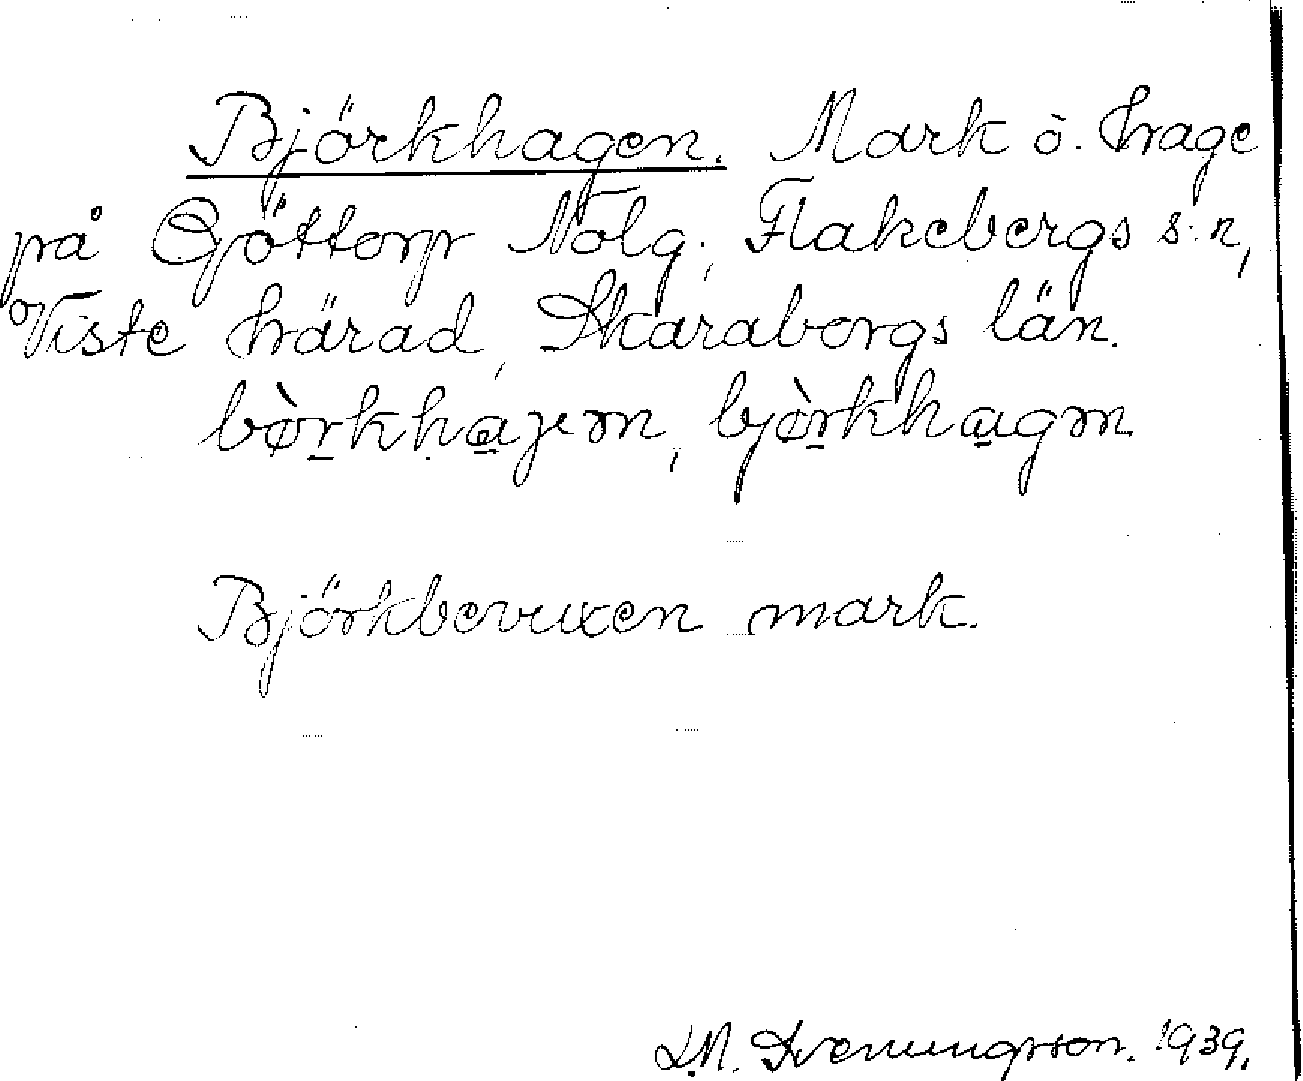 Björkhagen. Mark o. hage
på Gjöttorp Nolg., Flakebergs s:n,
Viste härad, Skaraborgs län.
bòrkhajem, bjòrkhagm
Björkbevuxen mark.
L.N. Svenungsson. 1939.